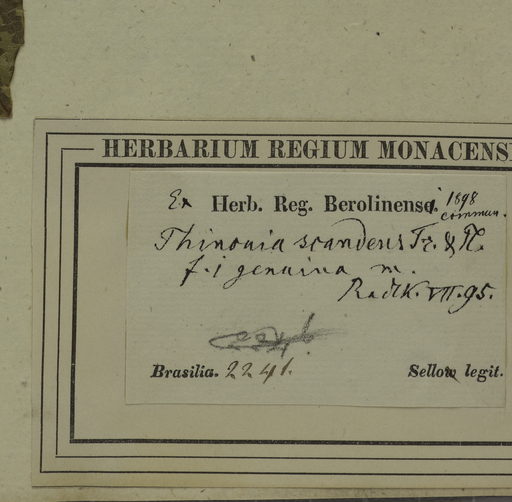 HERBARIUM REGIUM MONACENS
Ex Herb. Reg. Berolinensi. 1898
commun.
Thinouia scandens Tr. & Pl.
f. 1 genuina m.
Radlk. VII. 95.
Brasilia. 2241. Sellow legit.